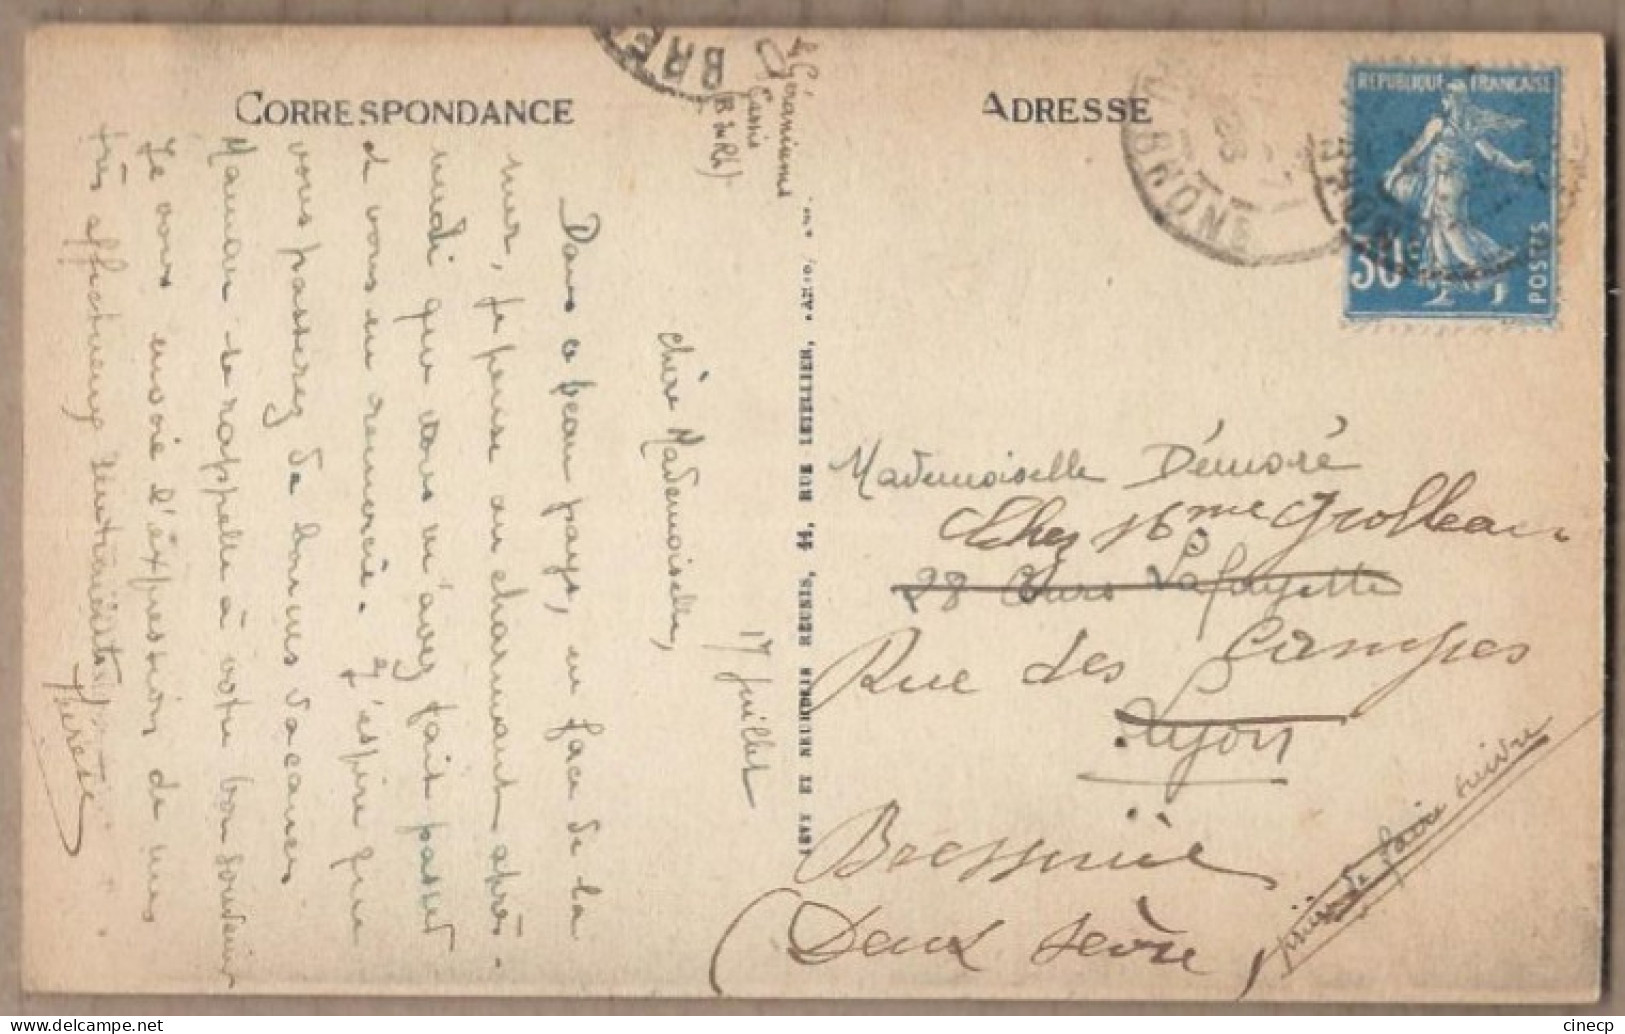 CORRESPONDANCE
ADRESSE
REPUBLIQUE FRANÇAISE
30c
POSTES
RHONE
BRE
Les Géraniums
Cassis
(B du Rh)
17 Juillet
Chère Mademoiselle,
Dans ce beau pays, en face de la
mer, je pense au charmant après-
midi que vous m'avez fait passer
et vous en remercie. J'espère que
vous passerez de bonnes vacances
Maman se rappelle à votre bon souvenir
Je vous envoie l'expression de mes
très affectueux sentiments
Mademoiselle Démoré
Chez Mme Grolleau
28 Cours Lafayette
Rue des Campes
Lyon
Bressuire
(Deux Sèvre)
prière de faire suivre
cinecp